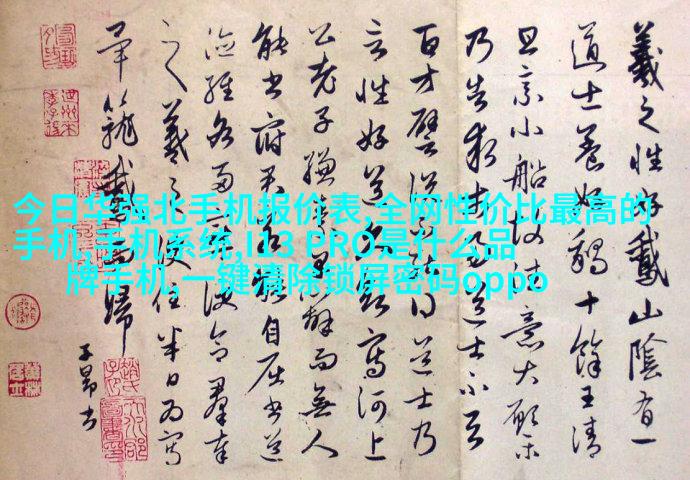 今日华强北手机报价表,全网性价比最高的
手机,手机系统,I13 PRO是什么品
牌手机,一键清除锁屏密码oppo
羲之性好鵞山陰有一
道士養好鵝十餘王清
旦乘小船故往意大願樂
乃告求市易道士不與
百方譬說不能得道士乃
言性好道久欲寫河上
公老子縑素早辦而無人
能書府君若能自屈書道
德經各兩章便合羣奉
以羲之便住半日為寫
畢籠鵞而歸
子昂書